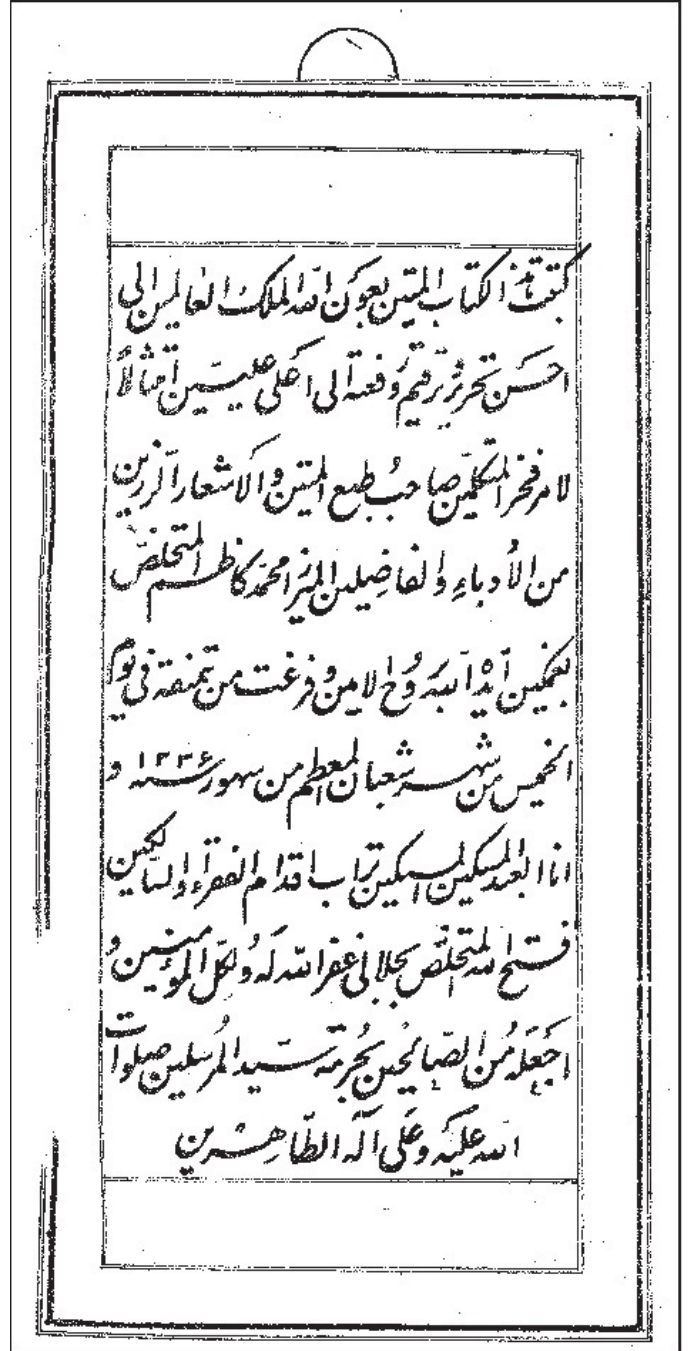 كتبت هذا الكتاب المتين بعون الله الملك العالمين الى
احسن تحرير ترقيم رفعة الى اعلى عليين امتثالاً
لامر فخر المتكلمين صاحب طبع المتين والاشعار الرزين
من الأدباء والفاضلين الميرزا محمد كاظم المتخلّص
بغمگين ايده الله روح الامين و فرغت من تنمقه في يوم
الخميس من شهر شعبان المعظم من شهور سنه ١٣٣۶ و
انا العبد المسكين المستكين تراب اقدام الفقراء والسالكين
فتح الله المتخلّص بجلالى غفر الله له ولكل المؤمنين و
اجعله من الصالحين بحرمة سيد المرسلين صلوات
الله عليه وعلى آله الطاهرين